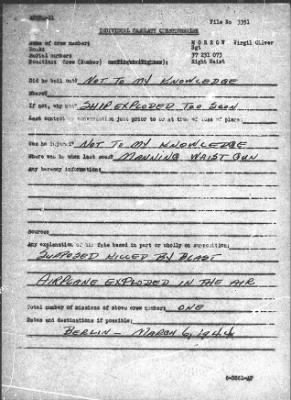 File No 3351
INDIVIDUAL CASUALTY QUESTIONNAIRE
Name of crew member: MORROW Virgil Oliver
Rank: Sgt
Serial number: 37 231 073
Position: Crew (Bomber) Right Waist
Did he bail out? NOT TO MY KNOWLEDGE
Where?
If not, why not? SHIP EXPLODED TOO SOON
Last contact or conversation just prior to or at time of loss of plane:
Was he injured? NOT TO MY KNOWLEDGE
Where was he when last seen? MANNING WAIST GUN
Any hearsay information:
Source:
Any explanation of his fate based in part or wholly on supposition:
SUPPOSED KILLED BY BLAST
AIRPLANE EXPLODED IN THE AIR
Total number of missions of above crew member: ONE
Dates and destinations if possible:
BERLIN - MARCH 6, 1944
6-3861-AF